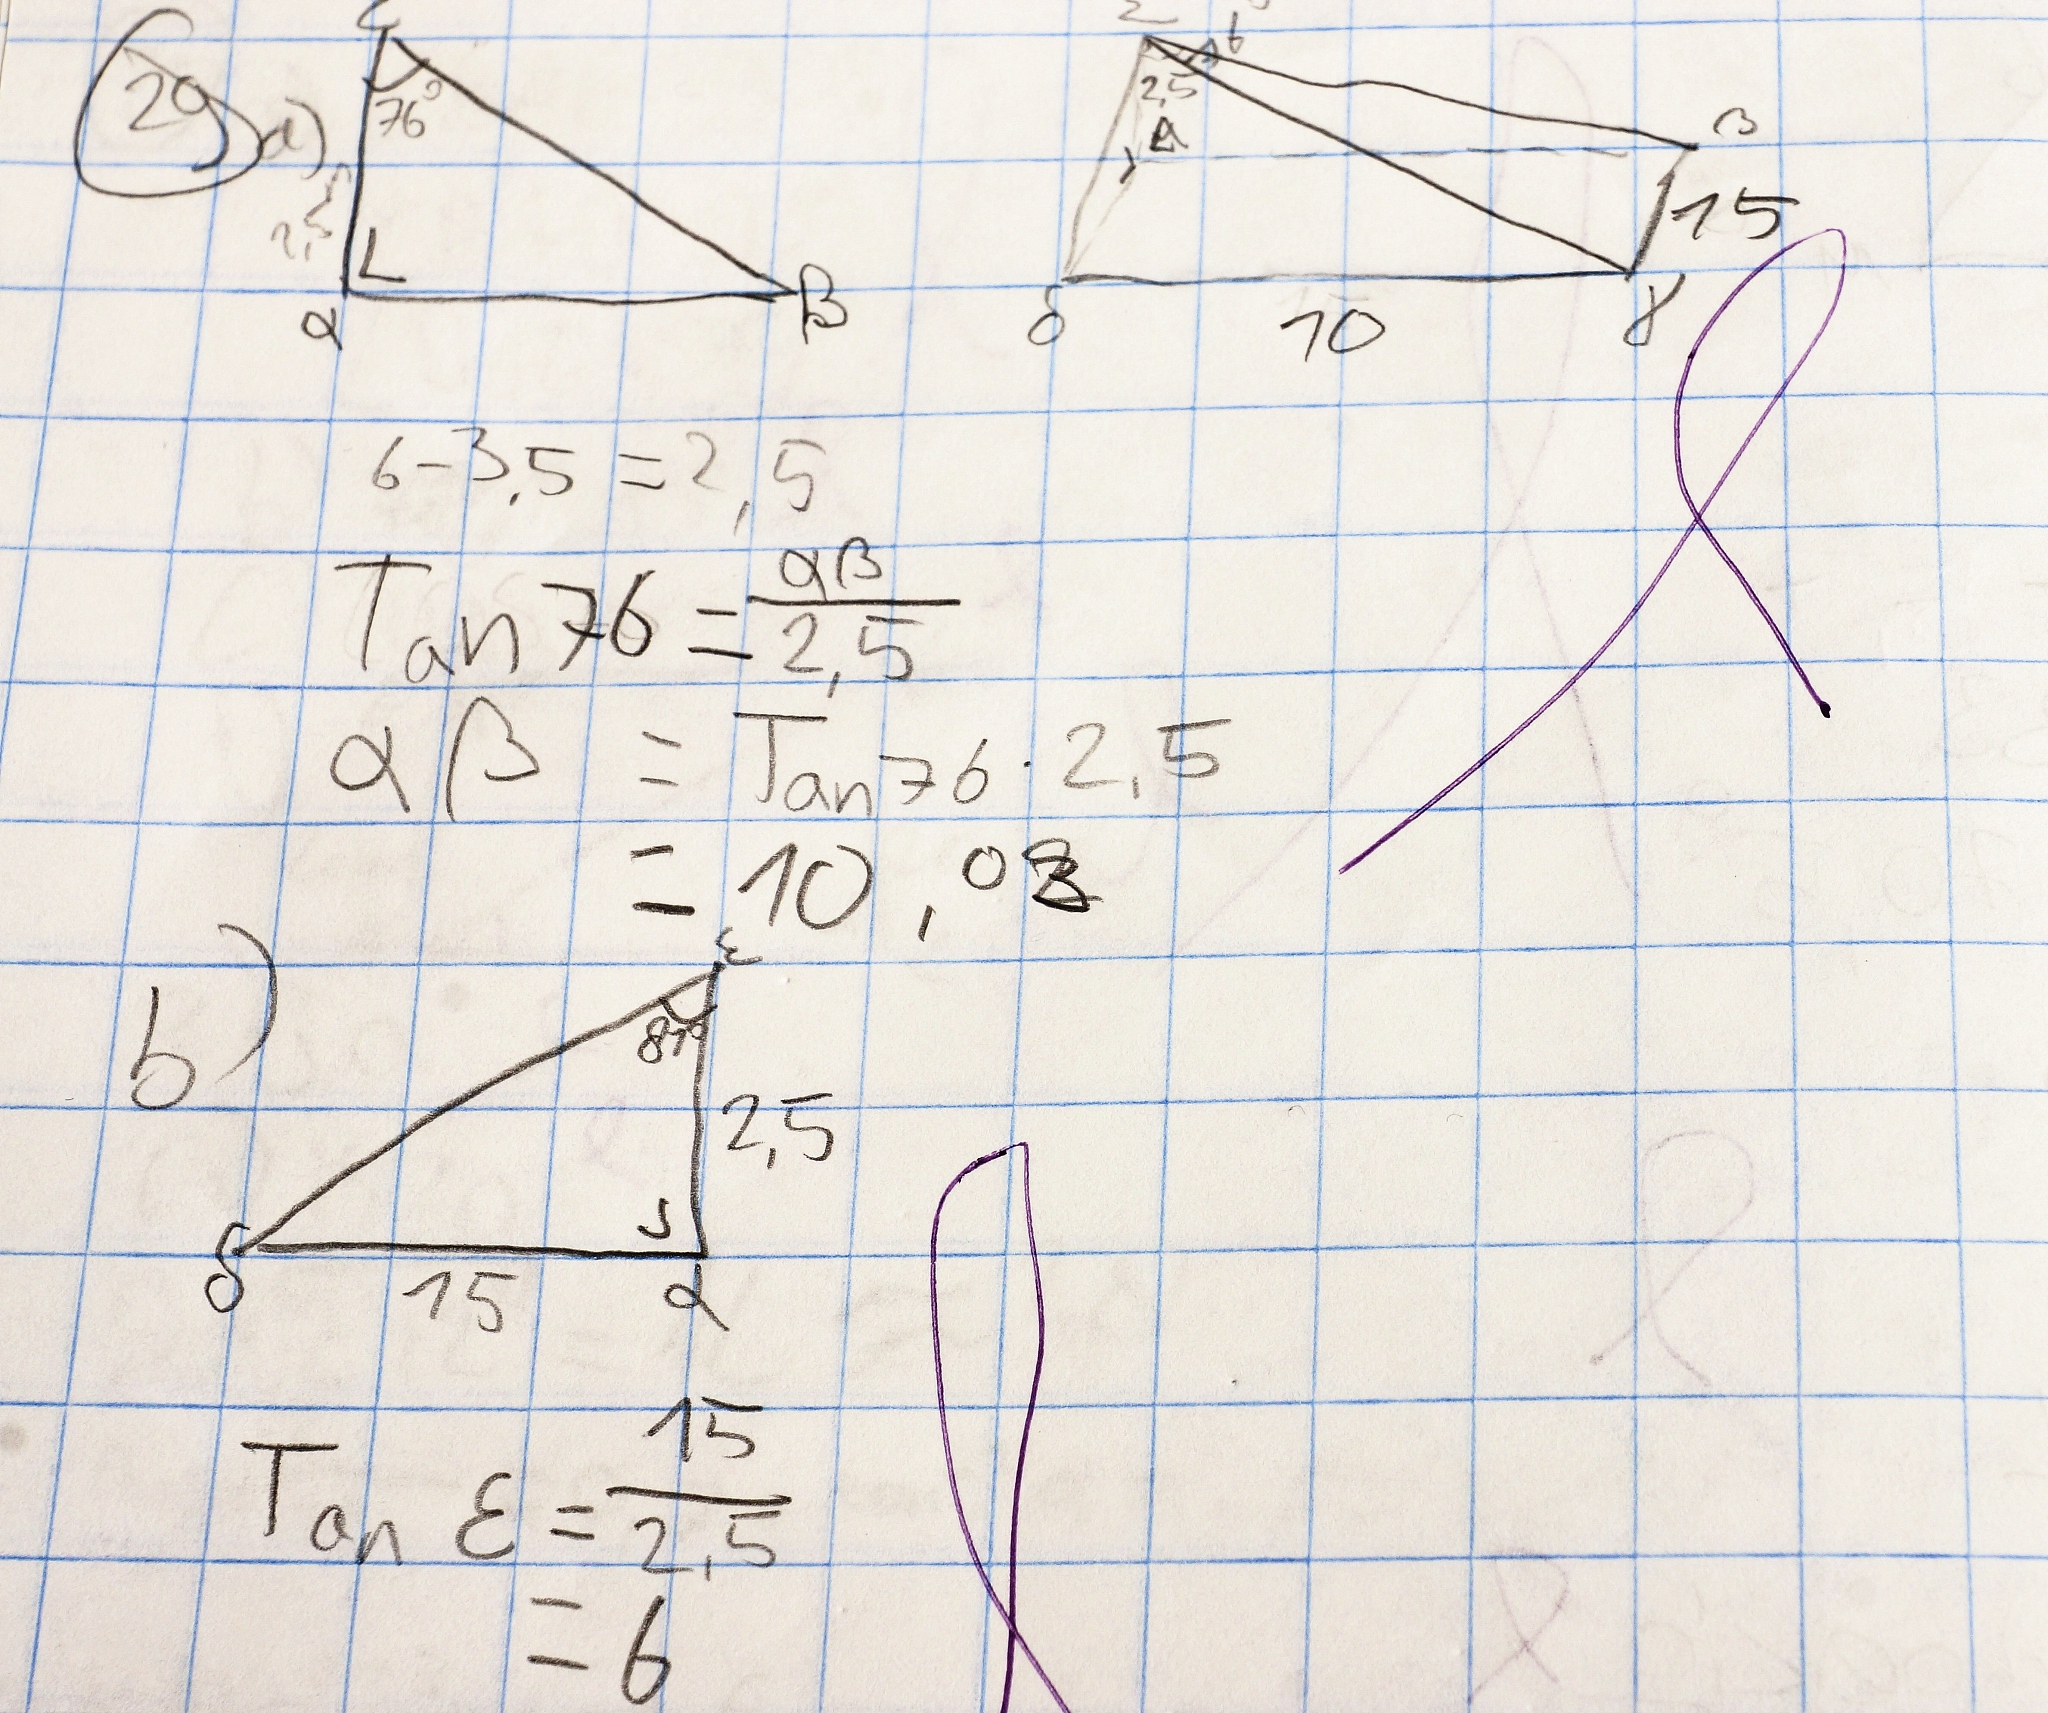 29 a)
ε
76°
2,5
α
β
Σ
76
2,5
A
β
15
δ
10
γ
6-3,5=2,5
Tan76 = αβ/2,5
αβ = Tan76·2,5
= 10,03
b)
ε
2,5
δ
15
α
Tan ε = 15/2,5
= 6